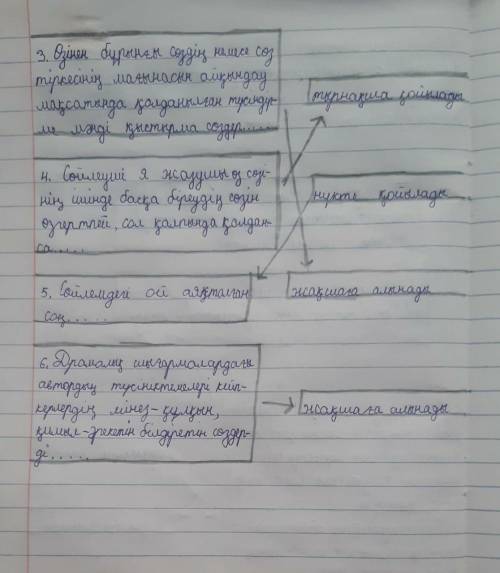 3. Өзінен бұрынғы сөздің немесе сөз
тіркесінің мағынасын айқындау
мақсатында қолданылған түсіндір-
ме мәнді қыстырма сөздер......
тырнақша қойылады
4. Сөйлеуші я жазушы өз сөзі-
нің ішінде басқа біреудің сөзін
өзгертпей, сол қалпында қолдан-
са.....
нүкте қойылады
5. Сөйлемдегі ой аяқталған
соң......
жақшаға алынады
6. Драмалық шығармалардағы
автордың түсініктемелері кейіп-
керлердің мінез-құлқын,
қимыл-әрекетін білдіретін сөздер-
ді.....
жақшаға алынады